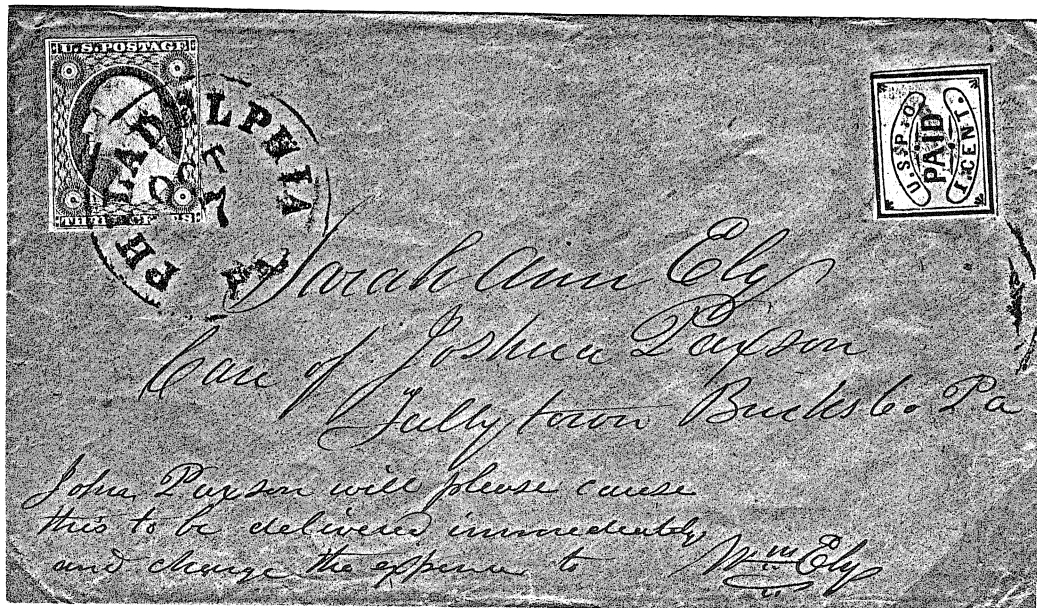 U.S. POSTAGE
THREE CENTS
PHILADELPHIA Pa
OCT
17
U.S.P.O.
PAID
1.CENT.
Sarah Ann Ely
Care of Joshua Paxson
Tullytown Bucks Co Pa
John Paxson will please cause
this to be delivered immediately
and charge the expense to Wm Ely